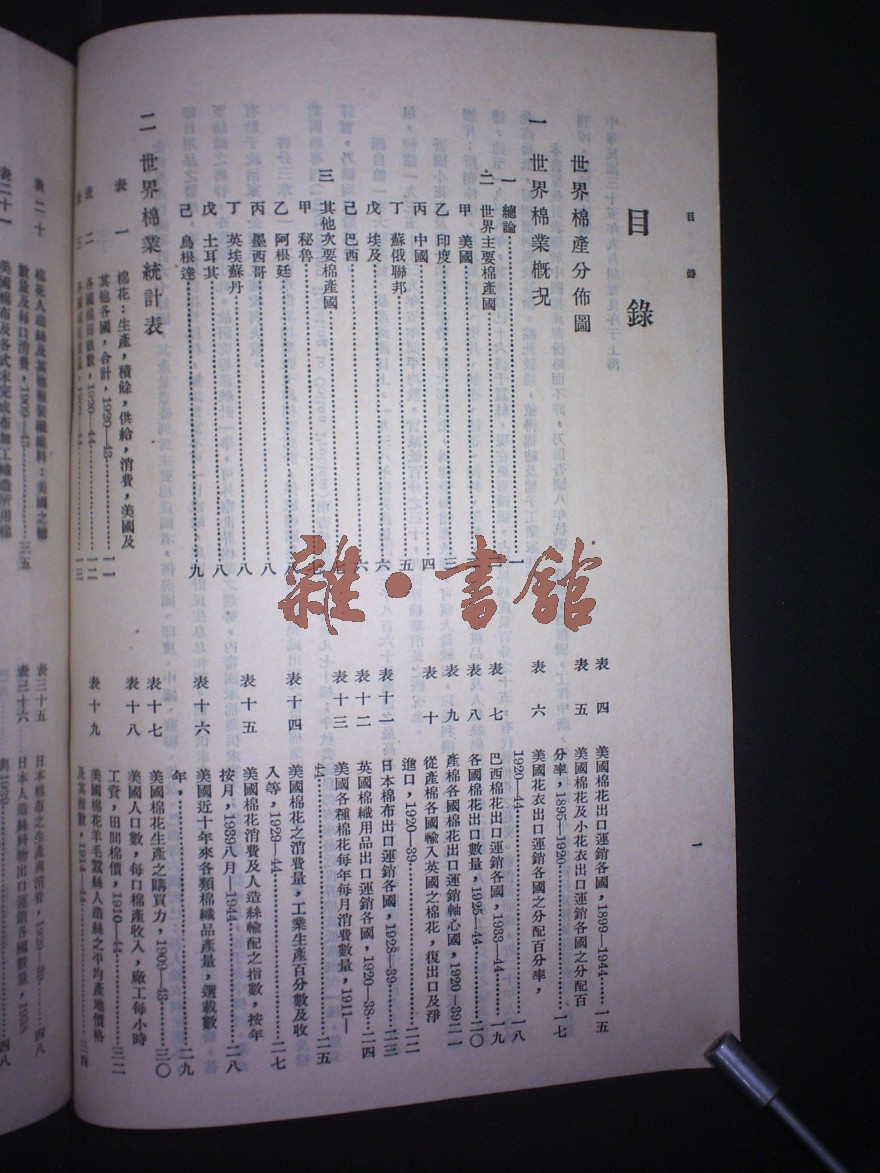 目錄
一
目錄
世界棉產分佈圖
一 世界棉業概況
一 總論 一
二 世界主要棉產國
甲 美國
乙 印度 三
丙 中國 四
丁 蘇俄聯邦 五
戊 埃及 六
己 巴西 六
三 其他次要棉產國 七
甲 秘魯 七
乙 阿根廷 八
丙 墨西哥 八
丁 英埃蘇丹 八
戊 土耳其 八
己 烏根達 九
二 世界棉業統計表
表一 棉花:生產,積餘,供給,消費,美國及
其他各國,合計,1920—43 一一
表二 各國棉田畝數,1920—44 一二
表三 一三
表四 美國棉花出口運銷各國,1899—1944 一五
表五 美國棉花及小花衣出口運銷各國之分配百
分率,1895—1920 一七
表六 美國花衣出口運銷各國之分配百分率,
1920—44 一八
表七 巴西棉花出口運銷各國,1933—44 一九
表八 各國棉花出口數量,1925—44 二〇
表九 產棉各國棉花出口運銷軸心國,1920—39 二一
表十 從產棉各國輸入英國之棉花,復出口及淨
進口,1920—39 二二
表十一 日本棉布出口運銷各國,1928—39 二三
表十二 英國棉織用品出口運銷各國,1920—38 二四
表十三 美國各種棉花每年每月消費數量,1911—
44 二五
表十四 美國棉花之消費量,工業生產百分數及收
入等,1929—44 二七
表十五 美國棉花消費及人造絲輸配之指數,按年
按月,1939八月—1944 二八
表十六 美國近十年來各類棉織品產量,選載數
年, 二九
表十七 美國棉花生產之購買力,1909—43 三〇
表十八 美國人口數,每口棉產收入,廠工每小時
工資,田間棉價,1910—44 三二
表十九 美國棉花羊毛蠶絲人造絲之平均產地價格
及其指數,1914—44 三四
表二十 棉花人造絲及其他服裝纖維料:美國之總
數量及每口消費, 三五
表二十一 美國棉布及各式未完成布加工織造所用棉
表三十五 日本棉布之生產與消費, 四八
表三十六 日本人造絲料物出口運銷各國數量,
四八